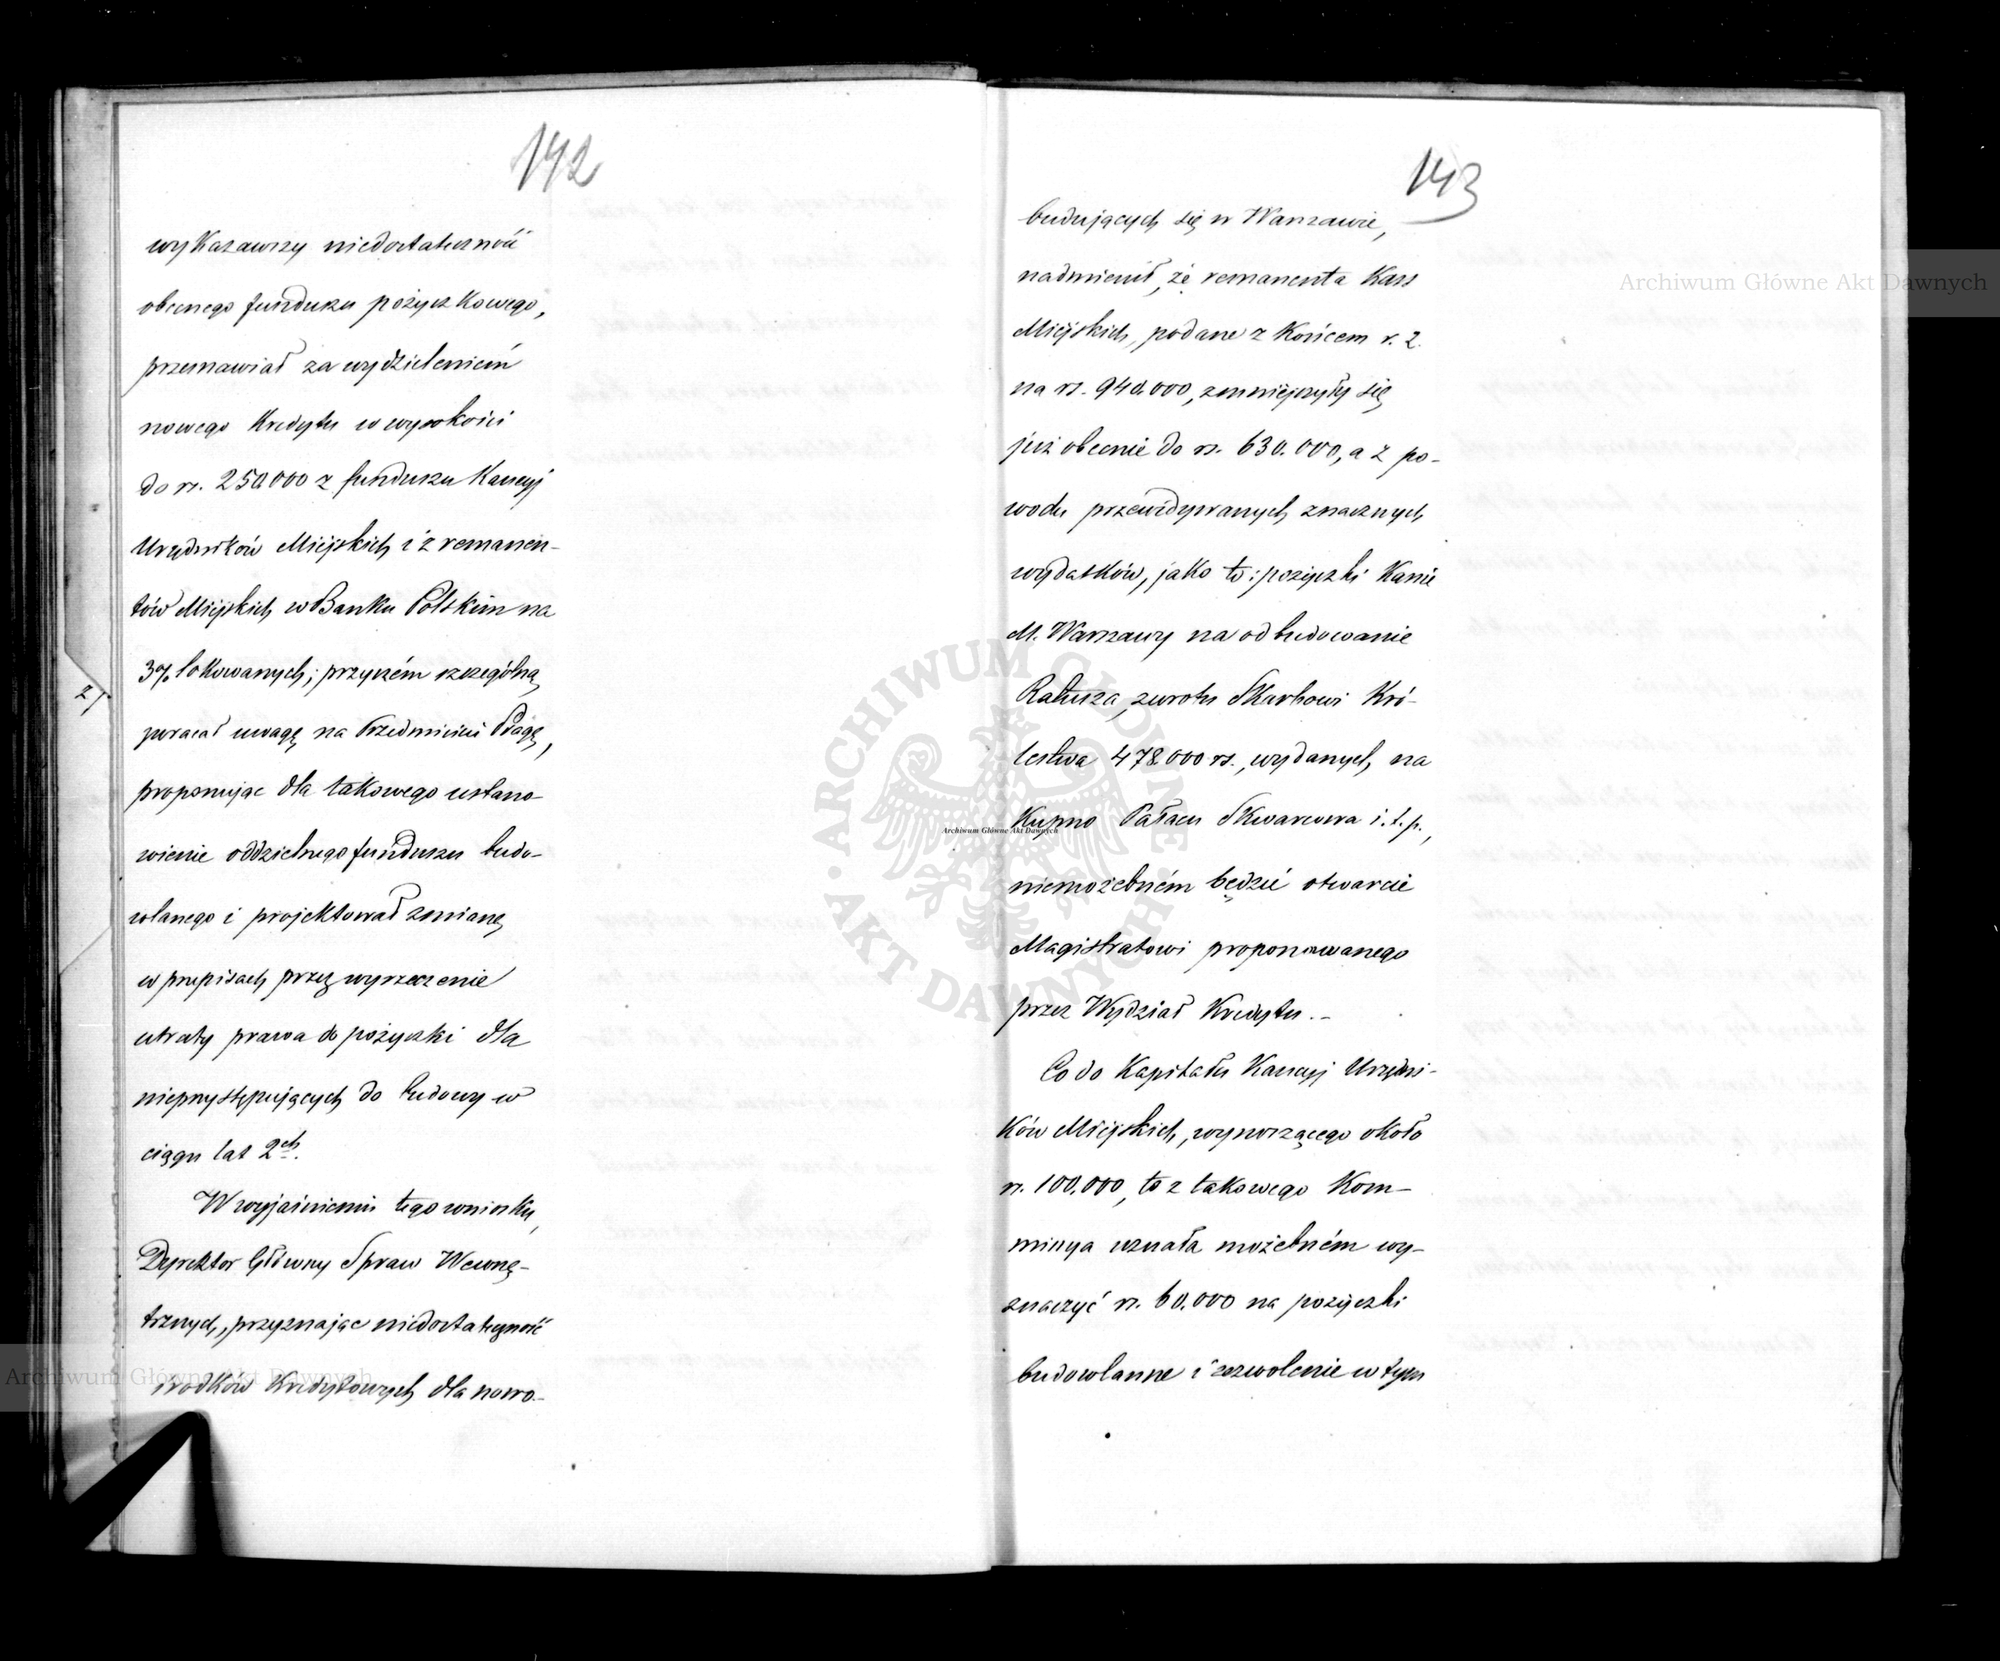 142
wykazawszy niedostateczność
obecnego funduszu pożyczkowego,
przemawiał za wydzieleniem
nowego Kredytu w wysokości
do rs. 250.000 z funduszu Kaucyj
Urzędników Miejskich i z remanen-
tów Miejskich w Banku Polskim na
3% lokowanych; przyczém szczególną
zwracał uwagę na Przedmieście Pragę,
proponując dla takowego ustano-
wienie oddzielnego funduszu budo-
wlanego i projektował zmianę
w przepisach przez wyrzeczenie
utraty prawa do pożyczki dla
nieprzystępujących do budowy w
ciągu lat 2ch.
W wyjaśnieniu tego wniosku,
Dyrektor Główny Spraw Wewnę-
trznych, przyznając niedostateczność
środków Kredytowych dla nowo-
143
budujących się w Warszawie,
nadmienił, że remanenta Kass
Miejskich, podane z Końcem r. z.
na rs. 940.000, zmniejszyły się
już obecnie do rs. 630.000, a z po-
wodu przewidywanych znacznych
wydatków, jako to: pożyczki Kassie
M. Warszawy na odbudowanie
Ratusza, zwrotu Skarbowi Kró-
lestwa 478.000 rs., wydanych, na
Kupno Pałacu Skwarcowa i.t.p.,
niemożebném będzie otwarcie
Magistratowi proponowanego
przez Wydział Kredytu.-
Co do Kapitału Kaucyj Urzędni-
ków Miejskich, wynoszącego około
rs. 100.000, to z takowego Kom-
missya uznała możebném wy-
znaczyć rs. 60.000 na pożyczki
budowlanne i zezwolenie w tym
Archiwum Główne Akt Dawnych
Archiwum Główne Akt Dawnych
Archiwum Główne Akt Dawnych
ARCHIWUM GŁÓWNE AKT DAWNYCH